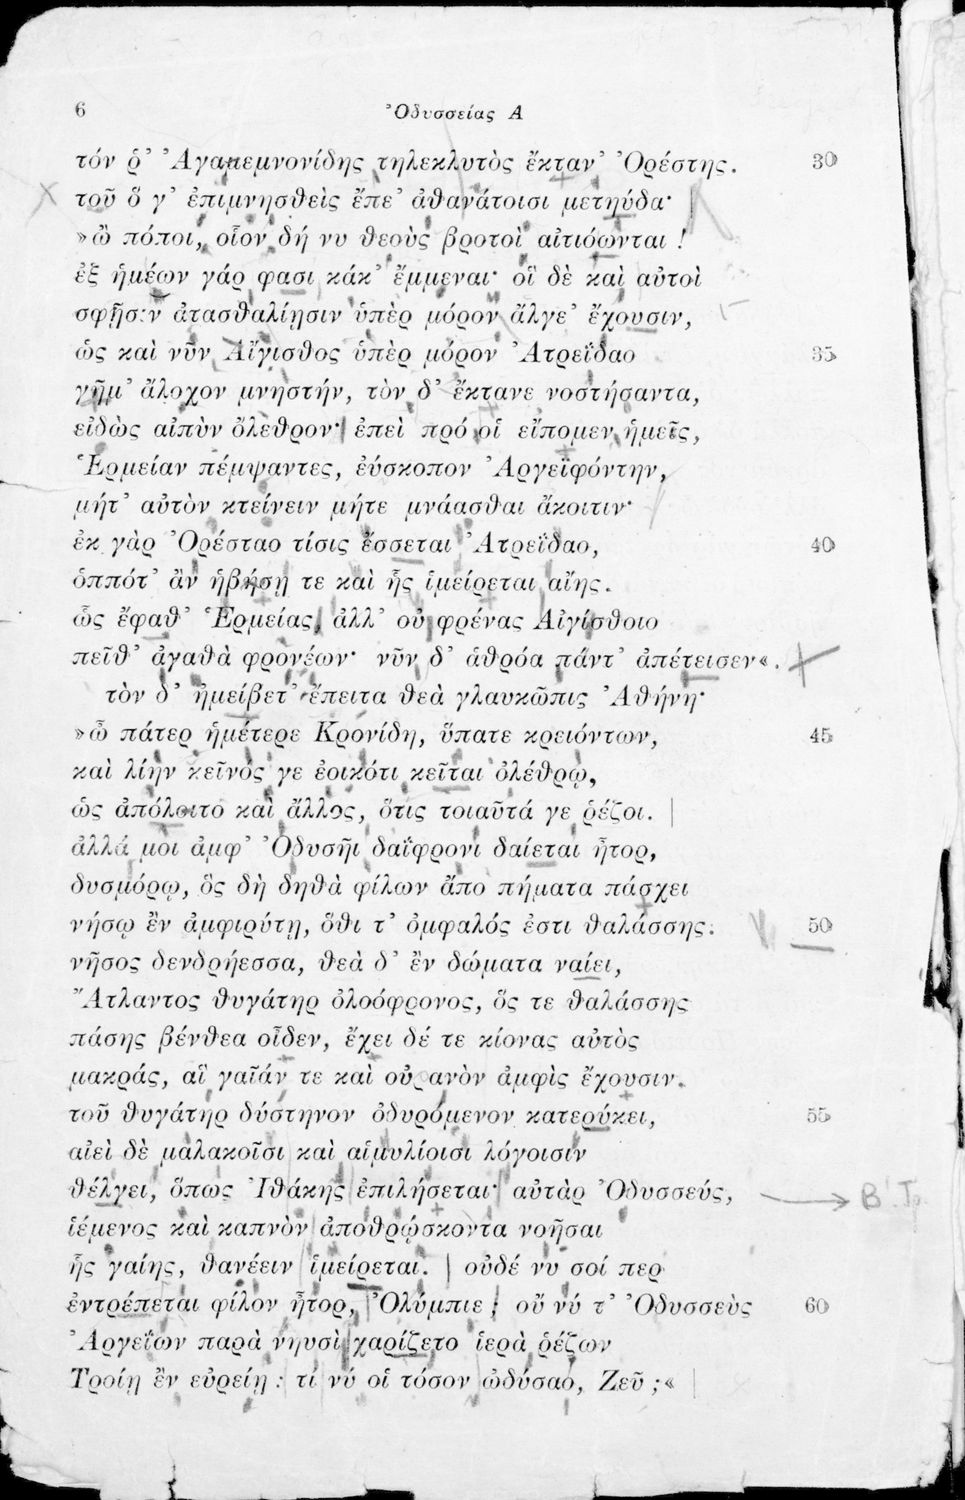 6 Ὀδυσσείας Α
τόν ῥ' Ἀγαμεμνονίδης τηλεκλυτὸς ἔκταν' Ὀρέστης. 30
τοῦ ὅ γ' ἐπιμνησθεὶς ἔπε' ἀθανάτοισι μετηύδα·
»ὢ πόποι, οἷον δή νυ θεοὺς βροτοὶ αἰτιόωνται !
ἐξ ἡμέων γάρ φασι κάκ' ἔμμεναι· οἳ δὲ καὶ αὐτοὶ
σφῇσιν ἀτασθαλίῃσιν ὑπὲρ μόρον ἄλγε' ἔχουσιν,
ὡς καὶ νῦν Αἴγισθος ὑπὲρ μόρον Ἀτρεΐδαο 35
γῆμ' ἄλοχον μνηστήν, τὸν δ' ἔκτανε νοστήσαντα,
εἰδὼς αἰπὺν ὄλεθρον· ἐπεὶ πρό οἱ εἴπομεν ἡμεῖς,
Ἑρμείαν πέμψαντες, ἐύσκοπον Ἀργεϊφόντην,
μήτ' αὐτὸν κτείνειν μήτε μνάασθαι ἄκοιτιν·
ἐκ γὰρ Ὀρέσταο τίσις ἔσσεται Ἀτρεΐδαο, 40
ὁππότ' ἂν ἡβήσῃ τε καὶ ἧς ἱμείρεται αἴης.
ὣς ἔφαθ' Ἑρμείας, ἀλλ' οὐ φρένας Αἰγίσθοιο
πεῖθ' ἀγαθὰ φρονέων· νῦν δ' ἁθρόα πάντ' ἀπέτεισεν«.
τὸν δ' ἠμείβετ' ἔπειτα θεὰ γλαυκῶπις Ἀθήνη·
»ὦ πάτερ ἡμέτερε Κρονίδη, ὕπατε κρειόντων, 45
καὶ λίην κεῖνός γε ἐοικότι κεῖται ὀλέθρῳ,
ὡς ἀπόλοιτο καὶ ἄλλος, ὅτις τοιαῦτά γε ῥέζοι.
ἀλλά μοι ἀμφ' Ὀδυσῆι δαΐφρονι δαίεται ἦτορ,
δυσμόρῳ, ὃς δὴ δηθὰ φίλων ἄπο πήματα πάσχει
νήσῳ ἒν ἀμφιρύτῃ, ὅθι τ' ὀμφαλός ἐστι θαλάσσης. 50
νῆσος δενδρήεσσα, θεὰ δ' ἒν δώματα ναίει,
Ἄτλαντος θυγάτηρ ὀλοόφρονος, ὅς τε θαλάσσης
πάσης βένθεα οἶδεν, ἔχει δέ τε κίονας αὐτὸς
μακράς, αἳ γαῖάν τε καὶ οὐρανὸν ἀμφὶς ἔχουσιν.
τοῦ θυγάτηρ δύστηνον ὀδυρόμενον κατερύκει, 55
αἰεὶ δὲ μαλακοῖσι καὶ αἱμυλίοισι λόγοισιν
θέλγει, ὅπως Ἰθάκης ἐπιλήσεται· αὐτὰρ Ὀδυσσεύς,
ἱέμενος καὶ καπνὸν ἀποθρῴσκοντα νοῆσαι
ἧς γαίης, θανέειν ἱμείρεται. οὐδέ νυ σοί περ
ἐντρέπεται φίλον ἦτορ, Ὀλύμπιε ; οὔ νύ τ' Ὀδυσσεὺς 60
Ἀργεΐων παρὰ νηυσὶ χαρίζετο ἱερὰ ῥέζων
Τροίῃ ἒν εὐρείῃ : τί νύ οἱ τόσον ὠδύσαο, Ζεῦ ;«